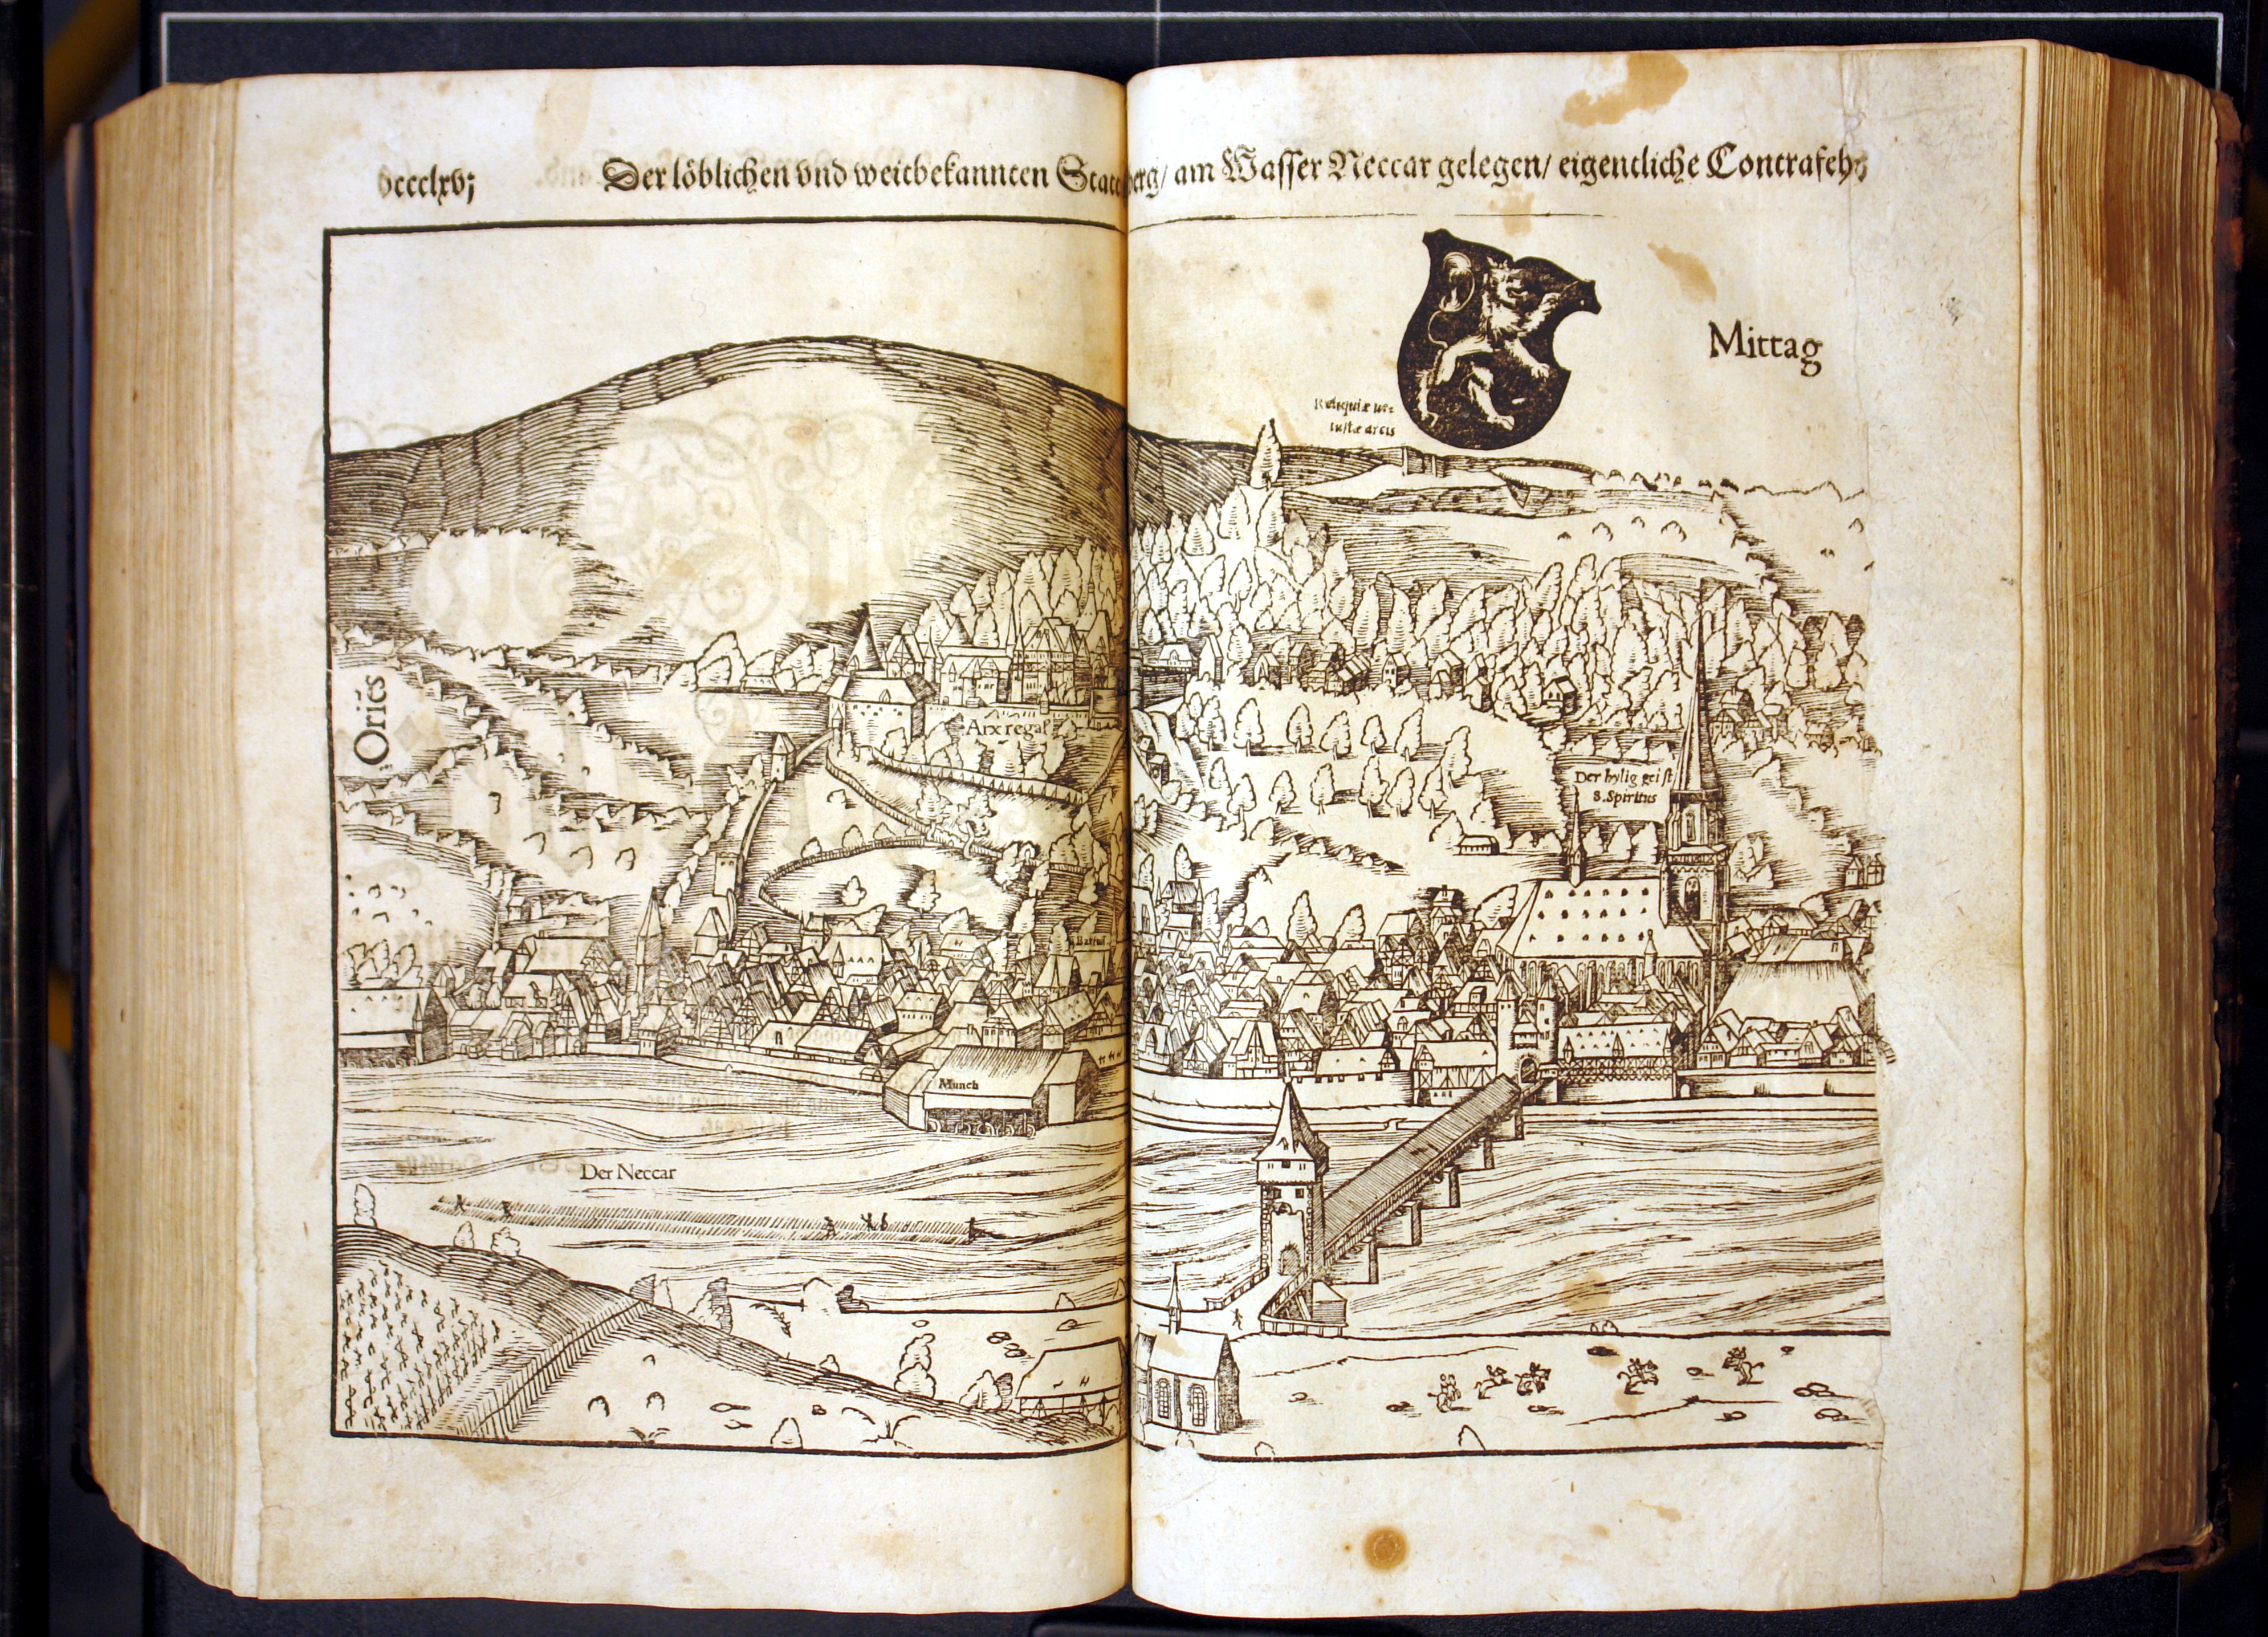 dccclxvj
Der löblichen vnd weitbekannten Stat berg/ am Wasser Neccar gelegen/ eigentliche Contrafeh
Mittag
Reliquiæ ue=
tustæ arcis
Oriēs
Arx regal
Der hylig geist
S. Spiritus
Munch
Der Neccar